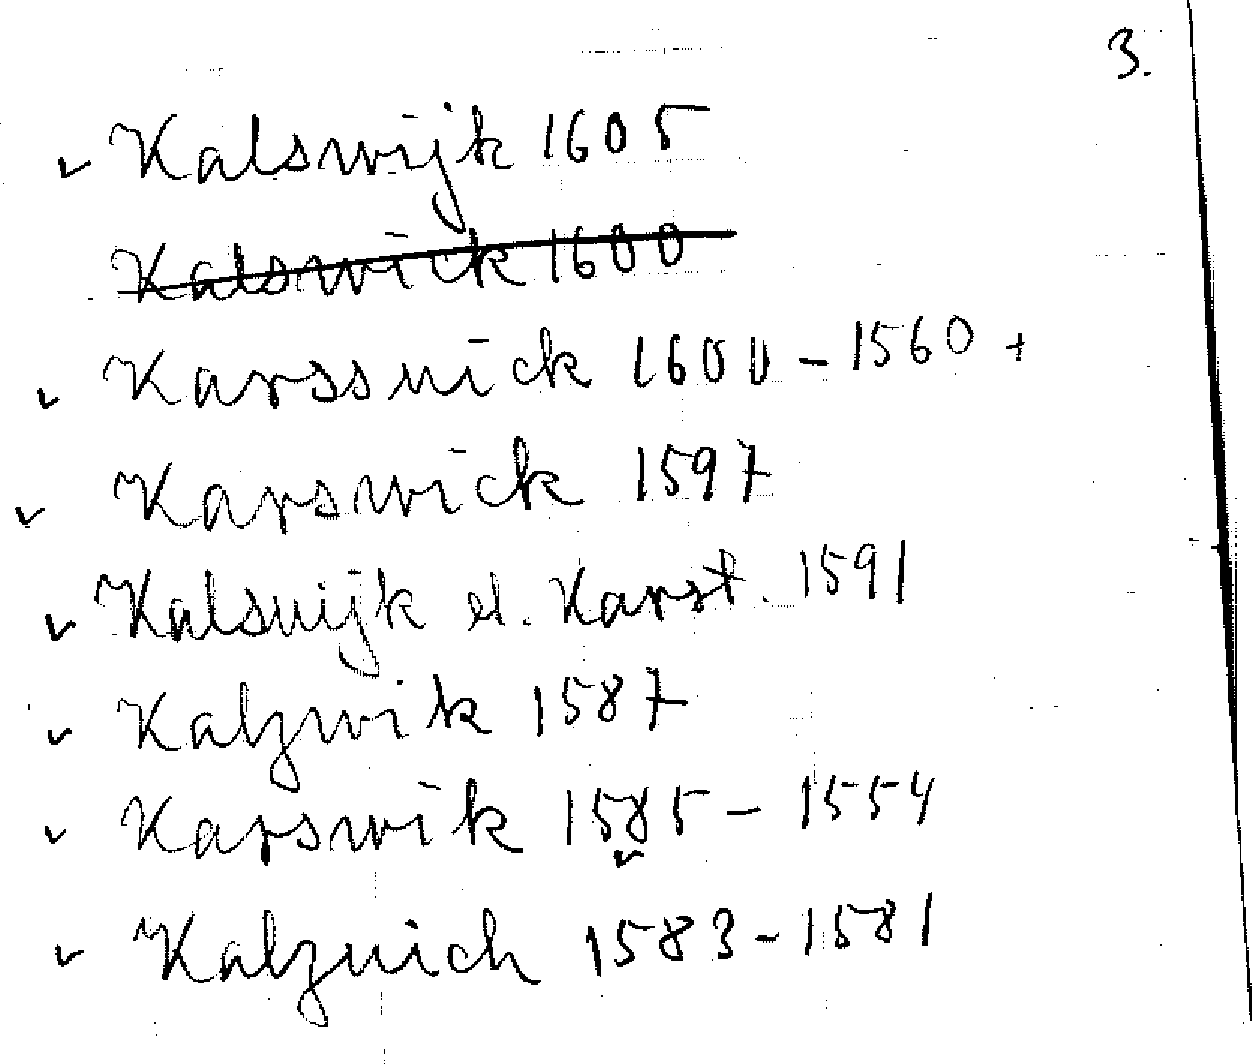 3.
✓ Kalswijk 1605
Kalswick 1600
✓ Karssuick 1600 - 1560 +
✓ Karswick 1597
✓ Kalsuijk el. Karst. 1591
✓ Kalzwik 1587
✓ Karswik 1585 - 1554
✓
✓ Kalzuich 1583 - 1581